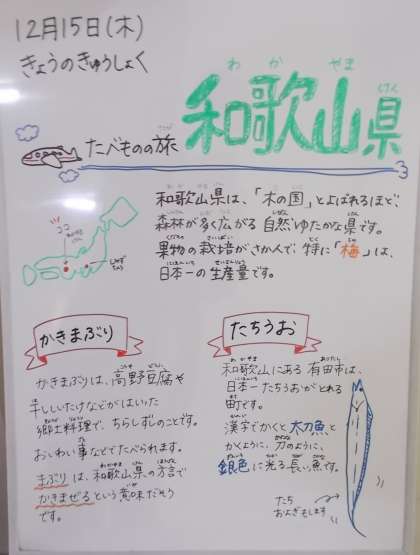 12月15日(木)
きょうのきゅうしょく
たべものの旅
和歌山県
和歌山県は、「木の国」とよばれるほど、
森林が多く広がる自然ゆたかな県です。
果物の栽培がさか人で、特に「梅」は、
日本一の生産量です。
ココ
かきまぶり
かきまぶりは、高野豆腐や
干ししいたけなどがはいった
郷土料理で、ちらしずしのことです。
おいわい事などでたべられます。
まぶりは、和歌山県の方言で
かきまぜるという意味だそう
です。
たちうお
和歌山にある有田市は、
日本一たちうおがとれる
町です。
漢字でかくと太刀魚と
かくように、刀のように、
銀色に光る長い魚です。
たち
およぎもします